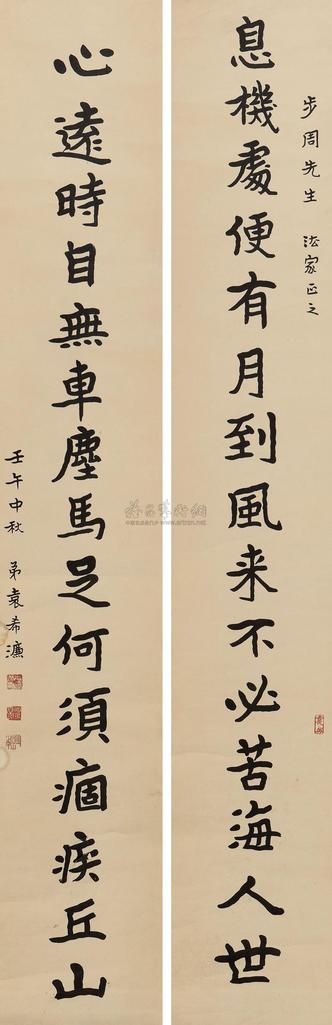 步周先生 法家正之
息機處便有月到風来不必苦海人世
心遠時自無車塵馬足何須痼疾丘山
壬午中秋 弟袁希濂